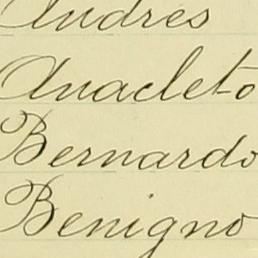 Andres
Anacleto
Bernardo
Benigno